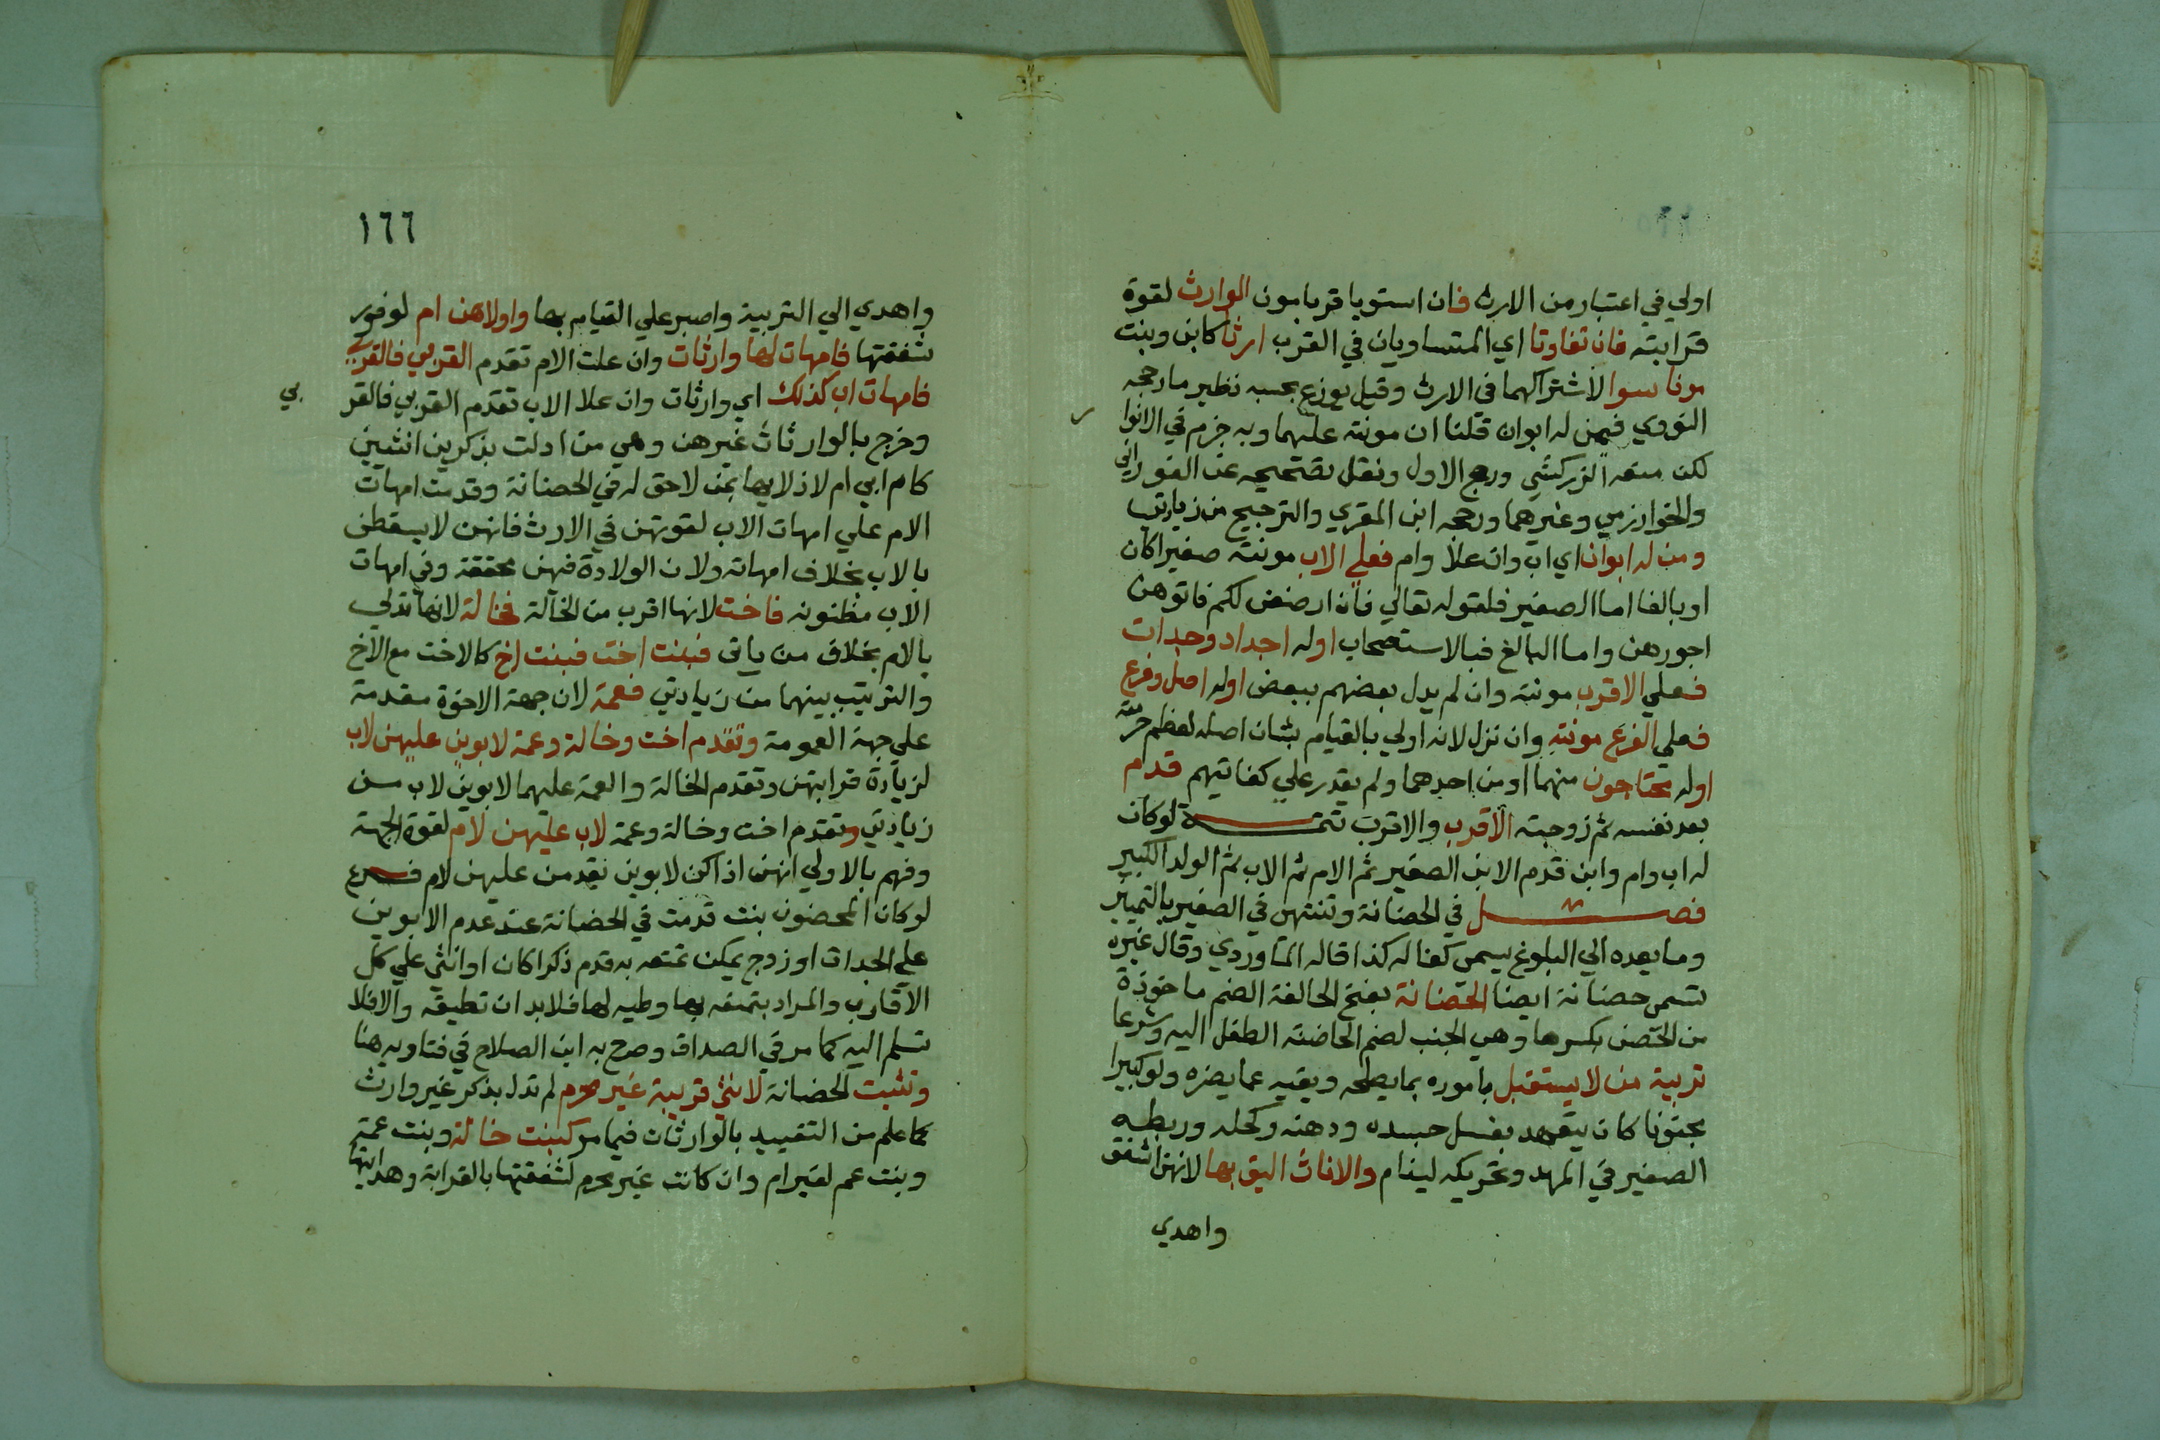 اولي في اعتبار من الارث فان استويا قربا بمون الوارث لقوة
قرابته فان تفاوتا اي المتساويان في القرب ارثا كابن وبنت
مونا سوا لاشتراكهما في الارث وقيل يوزع بحسبه نظير ما رجحه
النووي فيمن له ابوان قلنا ان مونته عليهما وبه جزم في الانوا
ر
لكن منعه الزركشي ورجح الاول ونقل تصحيحه عن الفوراني
والخوارزمي وغيرهما ورجحه ابن المقري والترجيح من زيادتي
ومن له ابوان اي اب وان علا وام فعلي الاب مونته صغيرا كان
او بالغا اما الصغير فلقوله تعالي فان ارضعن لكم فاتوهن
اجورهن واما البالغ فبالاستصحاب اوله اجداد وجدات
فعلي الاقرب مونته وان لم يدل بعضهم ببعض اوله اصل وفرع
فعلي الفرع مونته وان نزل لانه اولي بالقيام بشان اصله لعظم حرمته
اوله محتاجون منهما او من احدهما ولم يقدر علي كفايتهم قدم
بعد نفسه ثم زوجته الاقرب والاقرب تتمة لو كان
له اب وام وابن قدم الابن الصغير ثم الام ثم الاب ثم الولد الكبير
فصل في الحضانة وتنتهي في الصغير بالتمييز
وما بعده الي البلوغ يسمي كفاله كذا قاله الماوردي وقال غيره
تسمي حضانة ايضا الحضانة بفتح الحا لغة الضم ماخوذة
من الحضن بكسرها وهي الجنب لضم الحاضنة الطفل اليه وشرعا
تربية من لا يستقبل باموره بما يصلحه ويقيه عما يضره ولو كبيرا
مجنونا كان يتعهد بغسل جسده ودهنه وكحله وربطه
الصغير في المهد وتحريكه لينام والاناث اليق بها لانهن اشفق
واهدي
١٦٦
واهدي الي التربية واصبر علي القيام بها واولاهن ام لوفور
شفقتها فامهات لها وارثات وان علت الام تقدم القربي فالقربي
فامهات اب كذلك اي وارثات وان علا الاب تقدم القربي فالقر
بي
وخرج بالوارثات غيرهن وهي من ادلت بذكر بين انثيين
كام ابي ام لادلايها بمن لا حق له في الحضانة وقدمت امهات
الام علي امهات الاب لقوتهن في الارث فانهن لا يسقطن
بالاب بخلاف امهاته ولان الولادة فيهن محققة وفي امهات
الاب مظنونه فاخت لانها اقرب من الخالة فخالة لانها تدلي
بالام بخلاف من ياتي فبنت اخت فبنت اخ كالاخت مع الاخ
والترتيب بينهما من زيادتي فعمة لان جهة الاخوة مقدمة
علي جهة العمومة وتقدم اخت وخالة وعمة لابوين عليهن لاب
لزيادة قرابتهن وتقدم الخالة والعمة عليهما لابوين لاب من
زيادتي وتقدم اخت وخالة وعمة لاب عليهن لام لقوة الجهة
وفهم بالاولي انهن اذا كن لابوين تقدمن عليهن لام فرع
لو كان المحضون بنت قدمت في الحضانة عند عدم الابوين
علي الجدات او زوج يمكن تمتعه به قدم ذكرا كان او انثي علي كل
الاقارب والمراد بتمتعه بها وطيه لها فلا بد ان تطيقه والا فلا
تسلم اليه كما مر في الصداق وصرح به ابن الصلاح في فتاويه هنا
وتثبت الحضانة لانثي قريبة غير محرم لم تدل بذكر غير وارث
كما علم من التقييد بالوارثات فيما مر كبنت خالة وبنت عمة
وبنت عم لغير ام وان كانت غير محرم لشفقتها بالقرابة وهدايتها